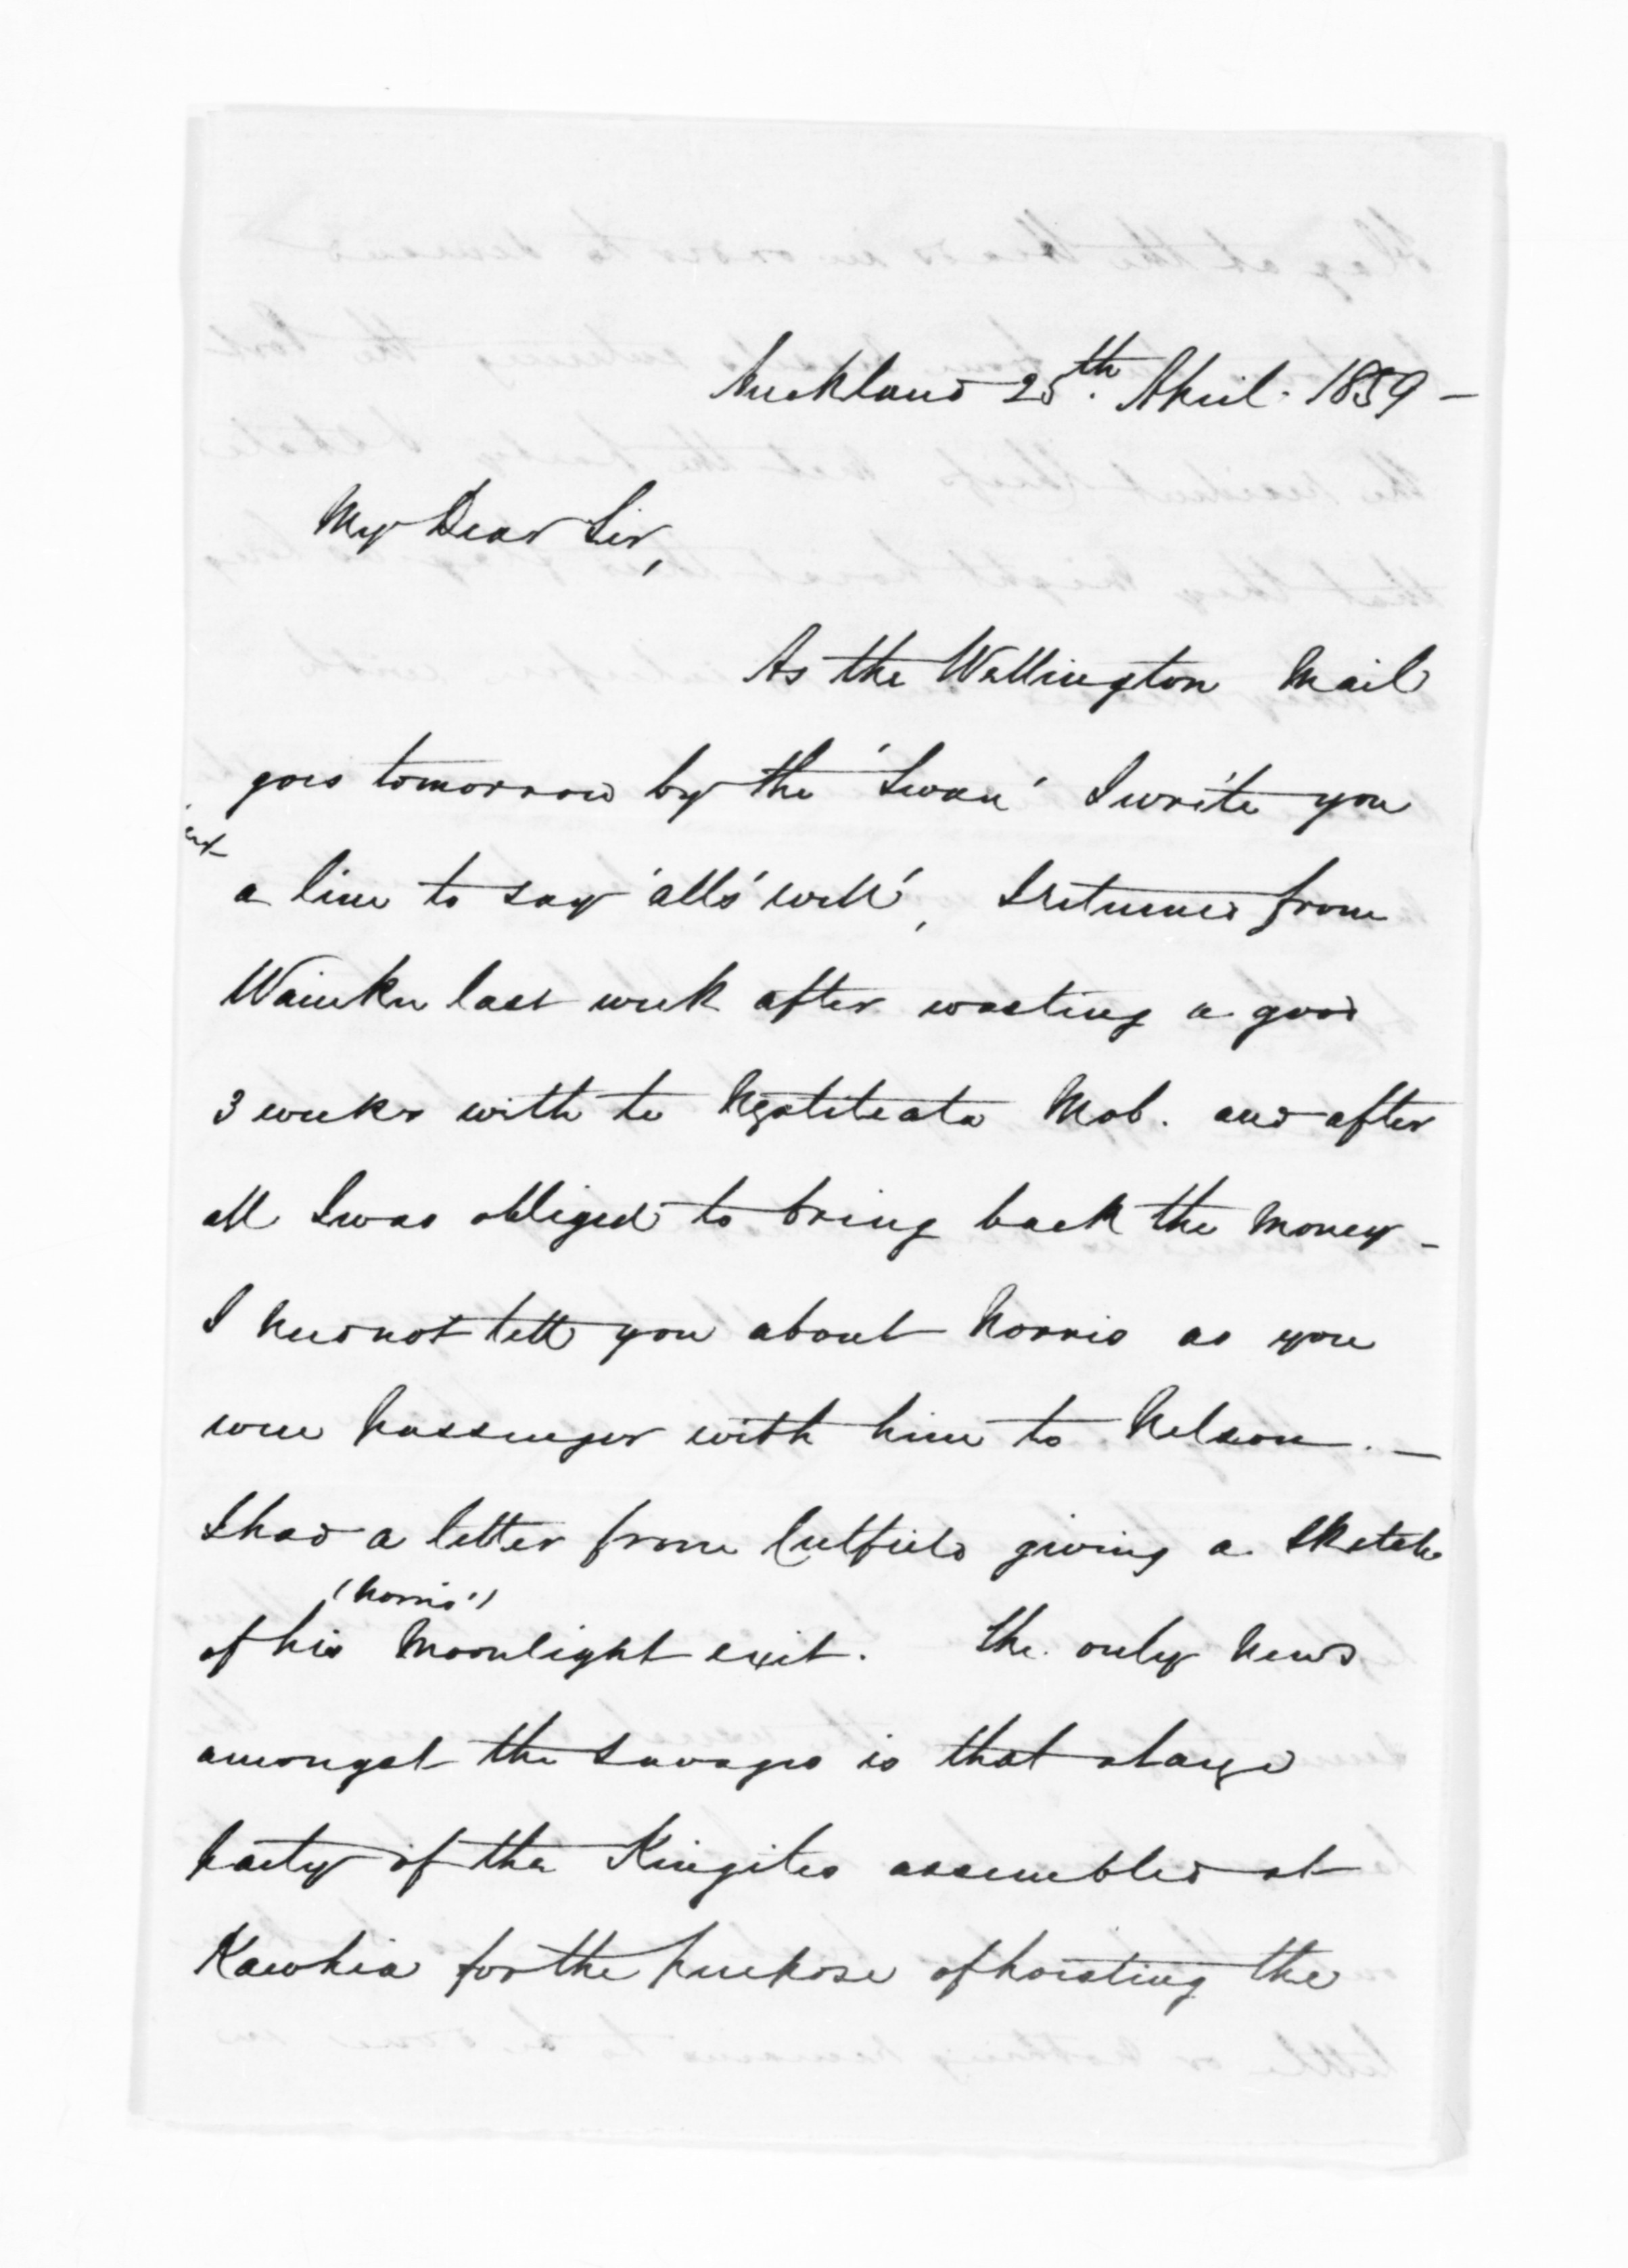 Auckland 25th. April. 1859 -
My Dear Sir,
As the Wellington Mail
goes tomorrow by the 'Swan' I write you
a line to say 'alls' well', I returned from
Waiuku last week after wasting a good
3 weeks with te Ngatiteata Mob. and after
all I was obliged to bring back the money -
I need not tell you about Norris as you
were passenger with him to Nelson. -
I had a letter from Cutfield giving a sketch
(Norris')
of his moonlight exit. The only news
amongst the savages is that a large
party of the Kingites assembled at
Kawhia for the purpose of hoisting the